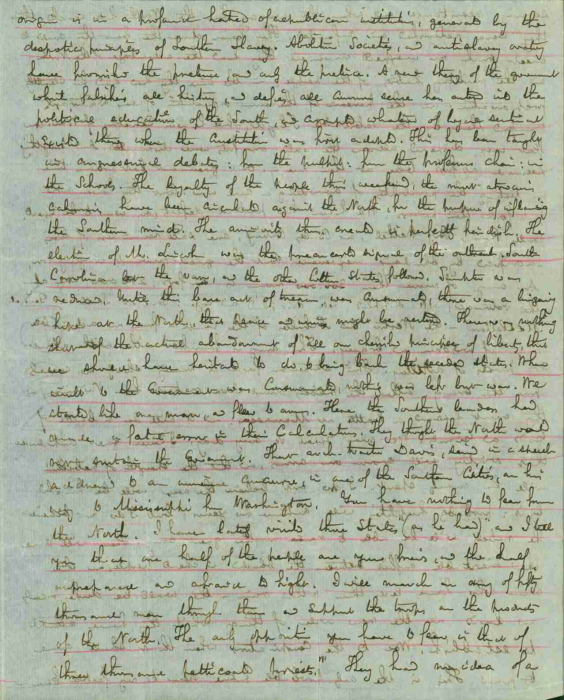 origin is in a profound hatred of republican institutions, generated by the
despotic principles of Southern Slavery. Abolition Societies, and antislavery oratory
have furnished the pretence, and only the pretence. A new theory of the government
which falsifies all history, and defies all common sense has entered into the
political education of the South, and corrupted whatever of loyal sentiment
existed there when the Constitution was first adopted. This has been taught
in congressional debates; from the pulpit; from the professors chair; in
the Schools. The loyalty of the people thus weakened, the most atrocious
calumnies have been circulated against the North, for the purpose of inflaming
the Southern mind. The animosity thus created is perfectly fiendish. The
election of Mr. Lincoln was the preconcerted signal of the outbreak. South
Carolina led the van, and the other Cotton States followed. Sumpter was
reduced. Until this base act of treason was consummated, there was a lingering
hope at the North, that peace and union might be restored. There was nothing
short of the actual abandonment of all our cherished principles of liberty that
we should have hesitated to do to bring back the seceded states. When
insult to the Government was consummated, nothing was left but war. We
stood like one man, and flew to arms. Here the Southern leaders had
made a fatal error in their calculations. They thought the North would
not sustain the Government. Their arch traitor Davis, said in a speech
addressed to an concourse, in one of the Southern Cities, on his
way to Mississippi from Washington. You have nothing to fear from
the North. I have lately visited those States (as he had) and I tell
you that one half of the people are your friends, and the other half
unprepared and afraid to fight. I will march an army of fifty
thousand men through them and support the troops on the products
of the North. The only opposition you have to fear is that of
three thousand petticoat priests." They had no idea of a